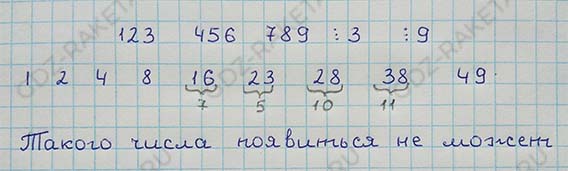 123 456 789 ⋮3 ⋮9
1 2 4 8 16 23 28 38 49.
7 5 10 11
Такого числа появиться не может